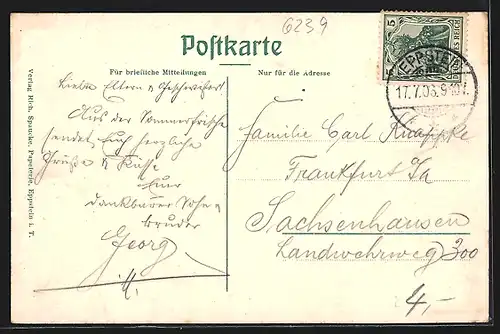 6239
Postkarte
Für briefliche Mitteilungen
Nur für die Adresse
5
EPPSTEIN
17.7.03. 9-10V.
Liebe Eltern & Geschwister!
Aus der Sommerfrische
sendet Euch herzliche
Grüße & Küsse
Euer
dankbarer Sohn &
Bruder
Georg
Familie Carl
Frankfurt
Sachsenhausen
Landwehrweg 300
4,-
Verlag Rich. Spancke, Papeterie, Eppstein i. T.